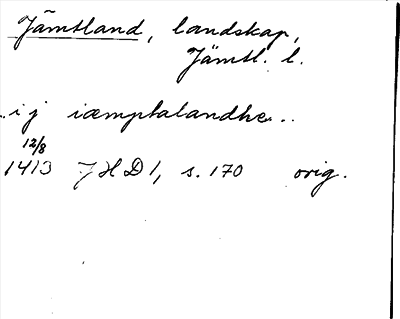 Jämtland, landskap,
Jämtl. l.
.. i j iæmptalandhe ..
12/8
1413 JHD 1, s. 170 orig.